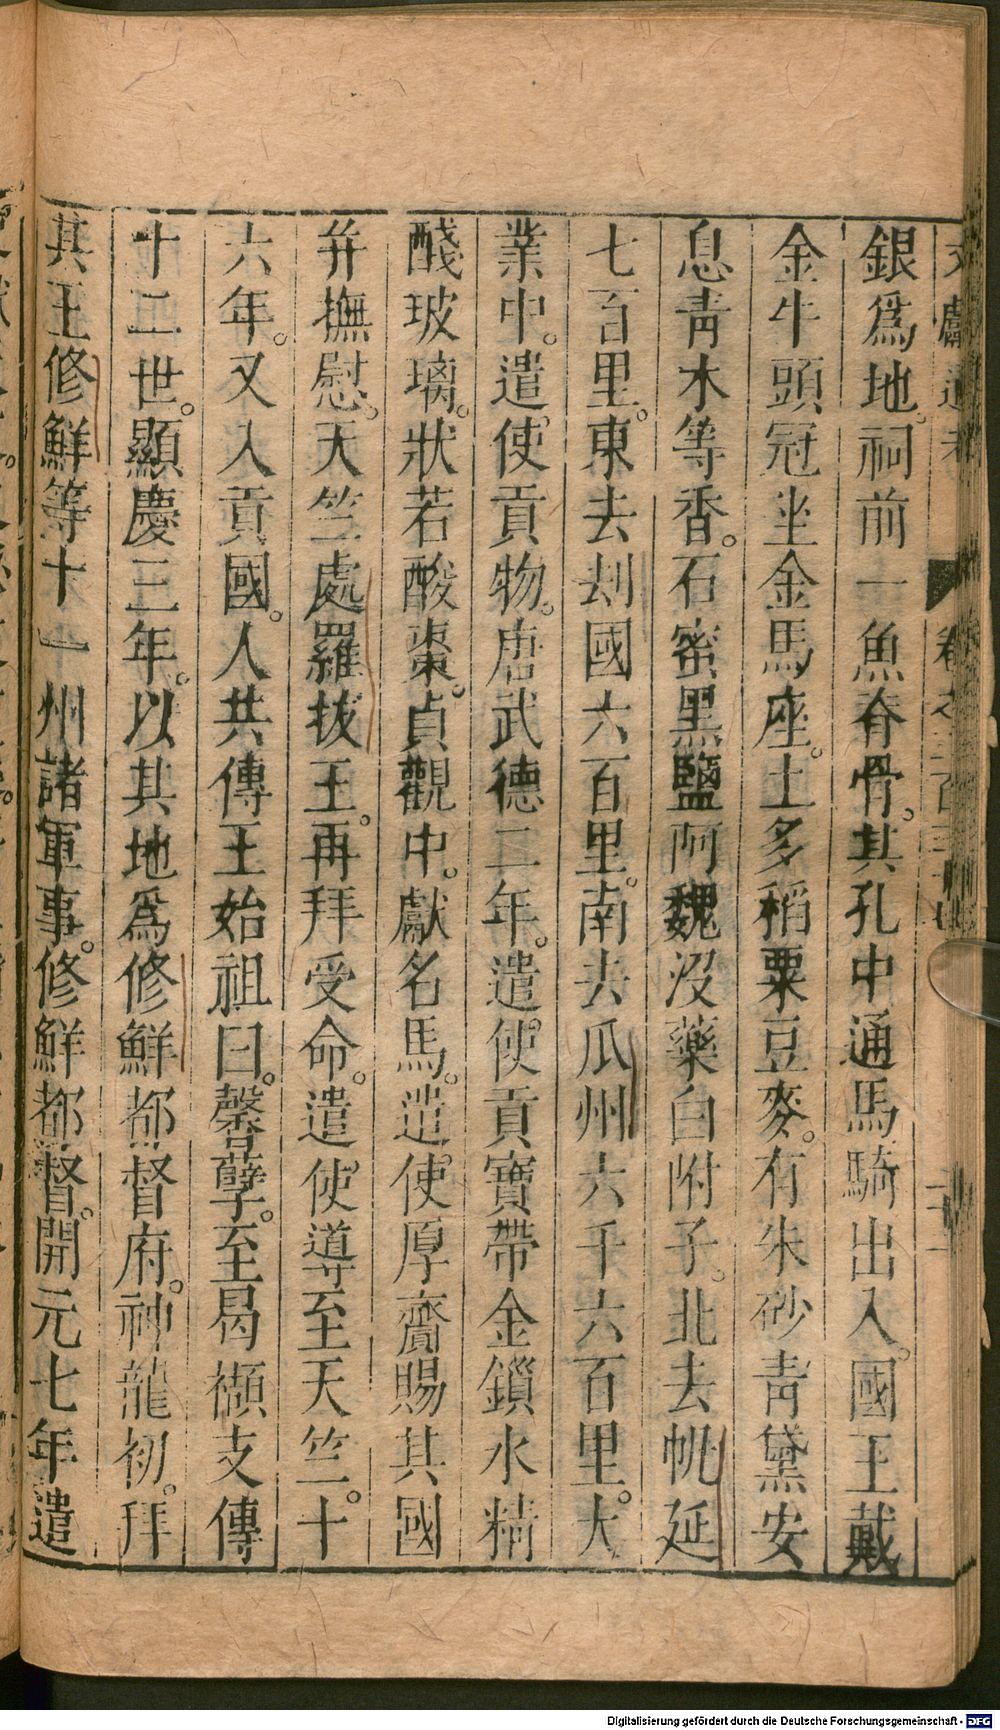 文獻通考 卷之三百三十
銀爲地祠前一魚脊骨其孔中通馬騎出入國王戴
金牛頭冠坐金馬座土多稻粟豆麥有朱砂青黛安
息青木等香石蜜黑鹽阿魏沒藥白附子北去帆延
七百里東去刦國六百里南去瓜州六千六百里大
業中遣使貢物唐武德二年遣使貢寶帶金鎖水精
醆玻璃狀若酸棗貞觀中獻名馬遣使厚齎賜其國
并撫慰天竺處羅拔王再拜受命遣使導至天竺十
六年又入貢國人共傳王始祖曰馨孽至曷擷支傳
十二世顯慶三年以其地爲修鮮都督府神龍初拜
其王修鮮等十一州諸軍事修鮮都督開元七年遣
Digitalisierung gefördert durch die Deutsche Forschungsgemeinschaft - DFG